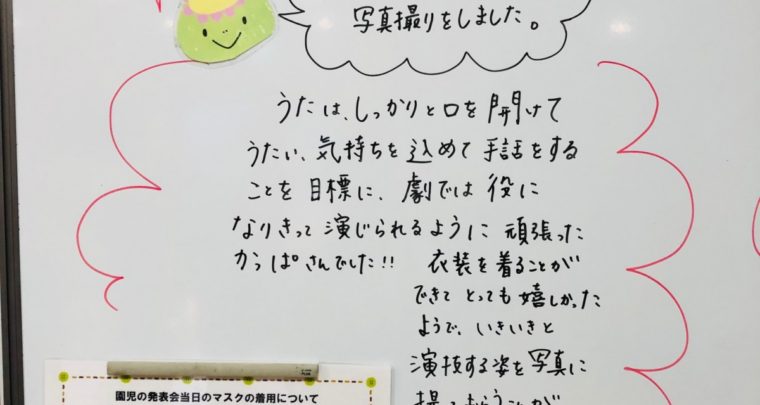 写真撮りをしました。
うたは、しっかりと口を開けて
うたい、気持ちを込めて手話をする
ことを目標に、劇では役に
なりきって演じられるように頑張った
かっぱさんでした!! 衣装を着ることが
できてとっても嬉しかった
ようで、いきいきと
演技する姿を写真に
撮ってもらうことが
園児の発表会当日のマスクの着用について